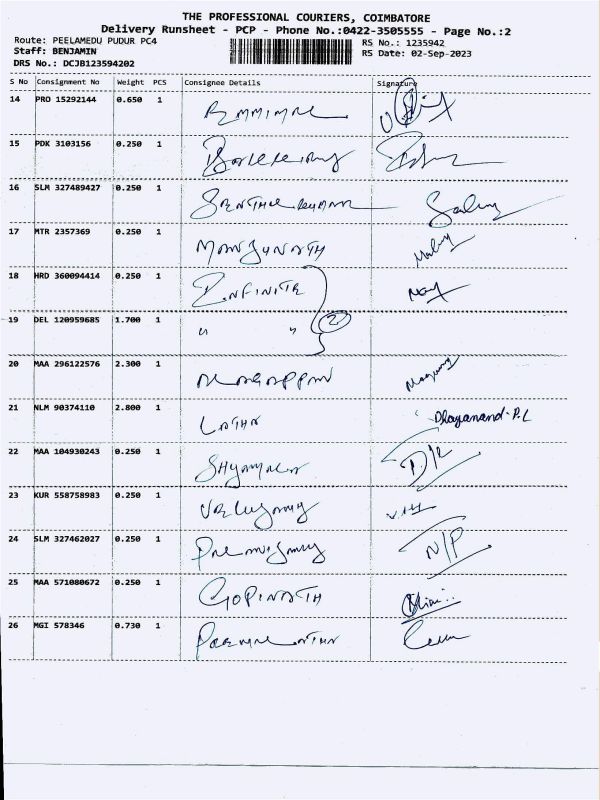 THE PROFESSIONAL COURIERS, COIMBATORE
Delivery Runsheet - PCP - Phone No.:0422-3505555 - Page No.:2
Route: PEELAMEDU PUDUR PC4 RS No.: 1235942
Staff: BENJAMIN RS Date: 02-Sep-2023
DRS No.: DCJB123594202
S No Consignment No Weight PCS Consignee Details Signature
14 PRO 15292144 0.650 1
15 PDK 3103156 0.250 1
16 SLM 327489427 0.250 1
17 MTR 2357369 0.250 1 MANJUNATH
18 HRD 360094414 0.250 1 INFINITE
19 DEL 120959685 1.700 1 " " 2
20 MAA 296122576 2.300 1
21 NLM 90374110 2.800 1 LATHA Dhayanand.P.L
22 MAA 104930243 0.250 1 SHYAMALA D/L
23 KUR 558758983 0.250 1 VELUSAMY
24 SLM 327462027 0.250 1 PALANISAMY N/P
25 MAA 571080672 0.250 1 GOPINATH
26 MGI 578346 0.730 1